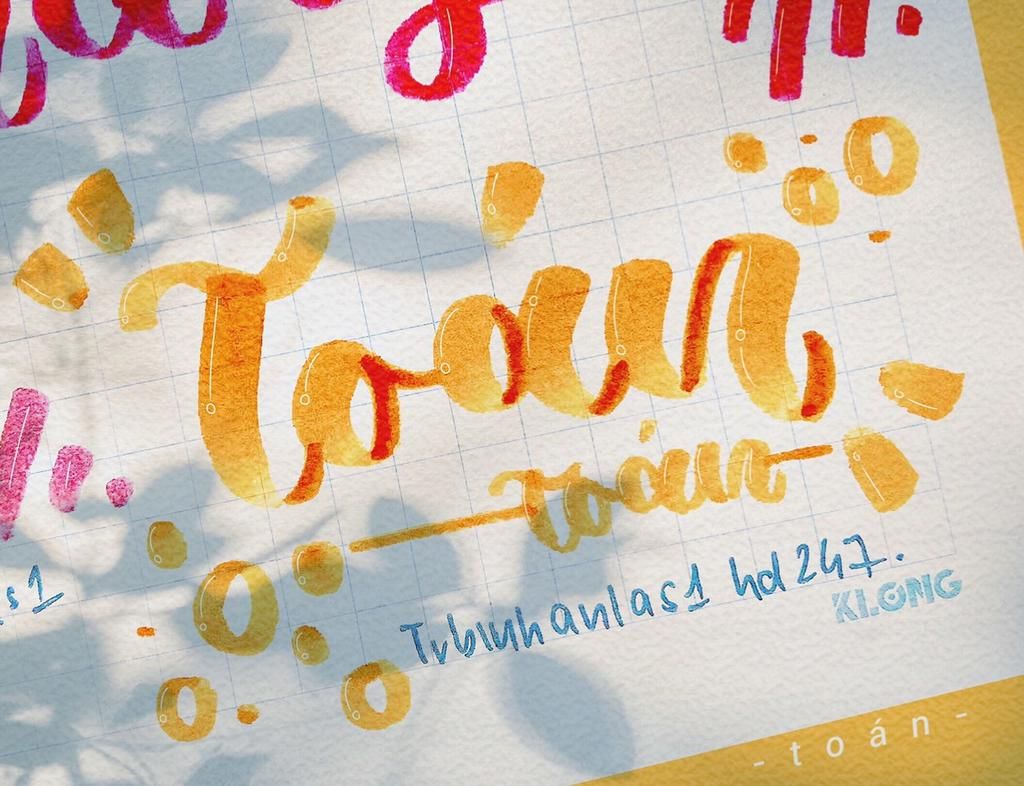 Toán
toán
s1
Trbiuhanlas1 hd247.
KLONG
- toán -